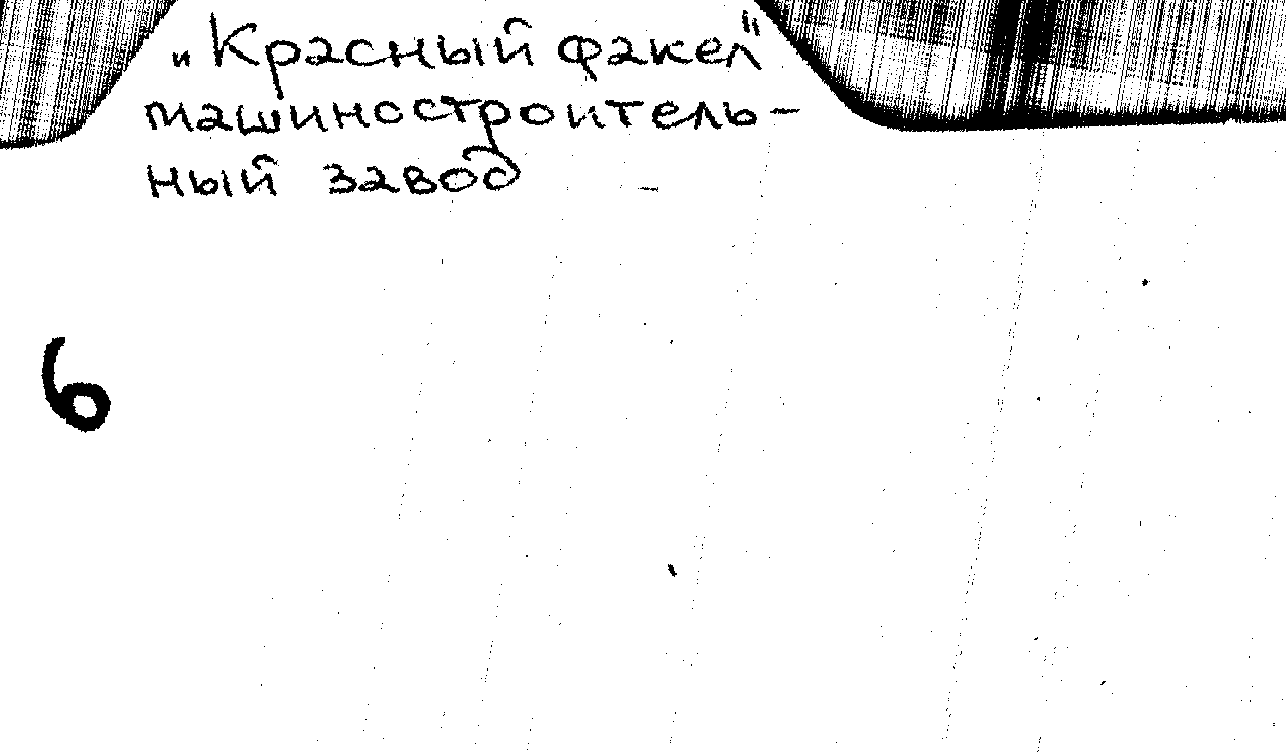 „Красный факел"
машиностроитель-
ный завод
6